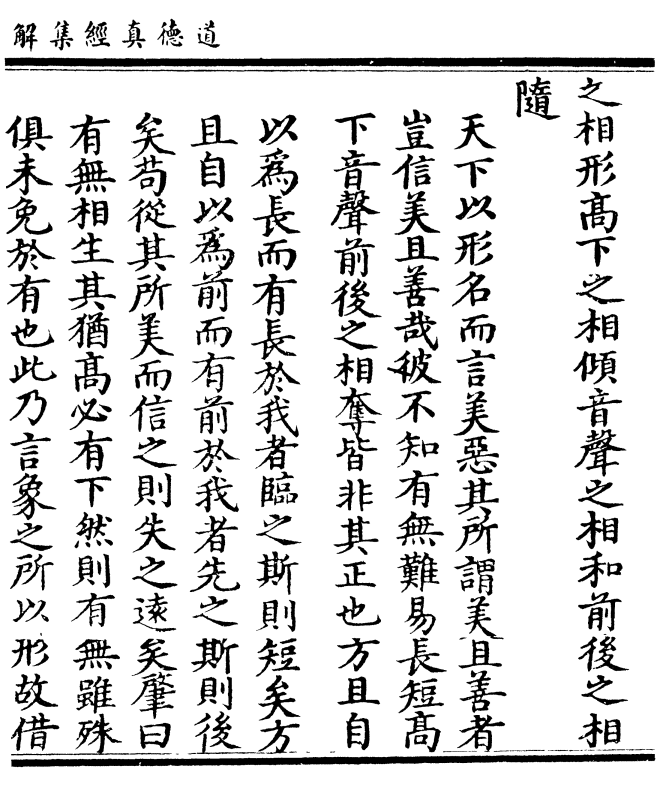 道德真經集解
之相形髙下之相傾音聲之相和前後之相
隨
天下以形名而言美惡其所謂美且善者
豈信美且善哉彼不知有無難易長短髙
下音聲前後之相奪皆非其正也方且自
以爲長而有長於我者臨之斯則短矣方
且自以爲前而有前於我者先之斯則後
矣苟從其所美而信之則失之逺矣肇曰
有無相生其猶髙必有下然則有無雖殊
俱未免於有也此乃言象之所以形故借